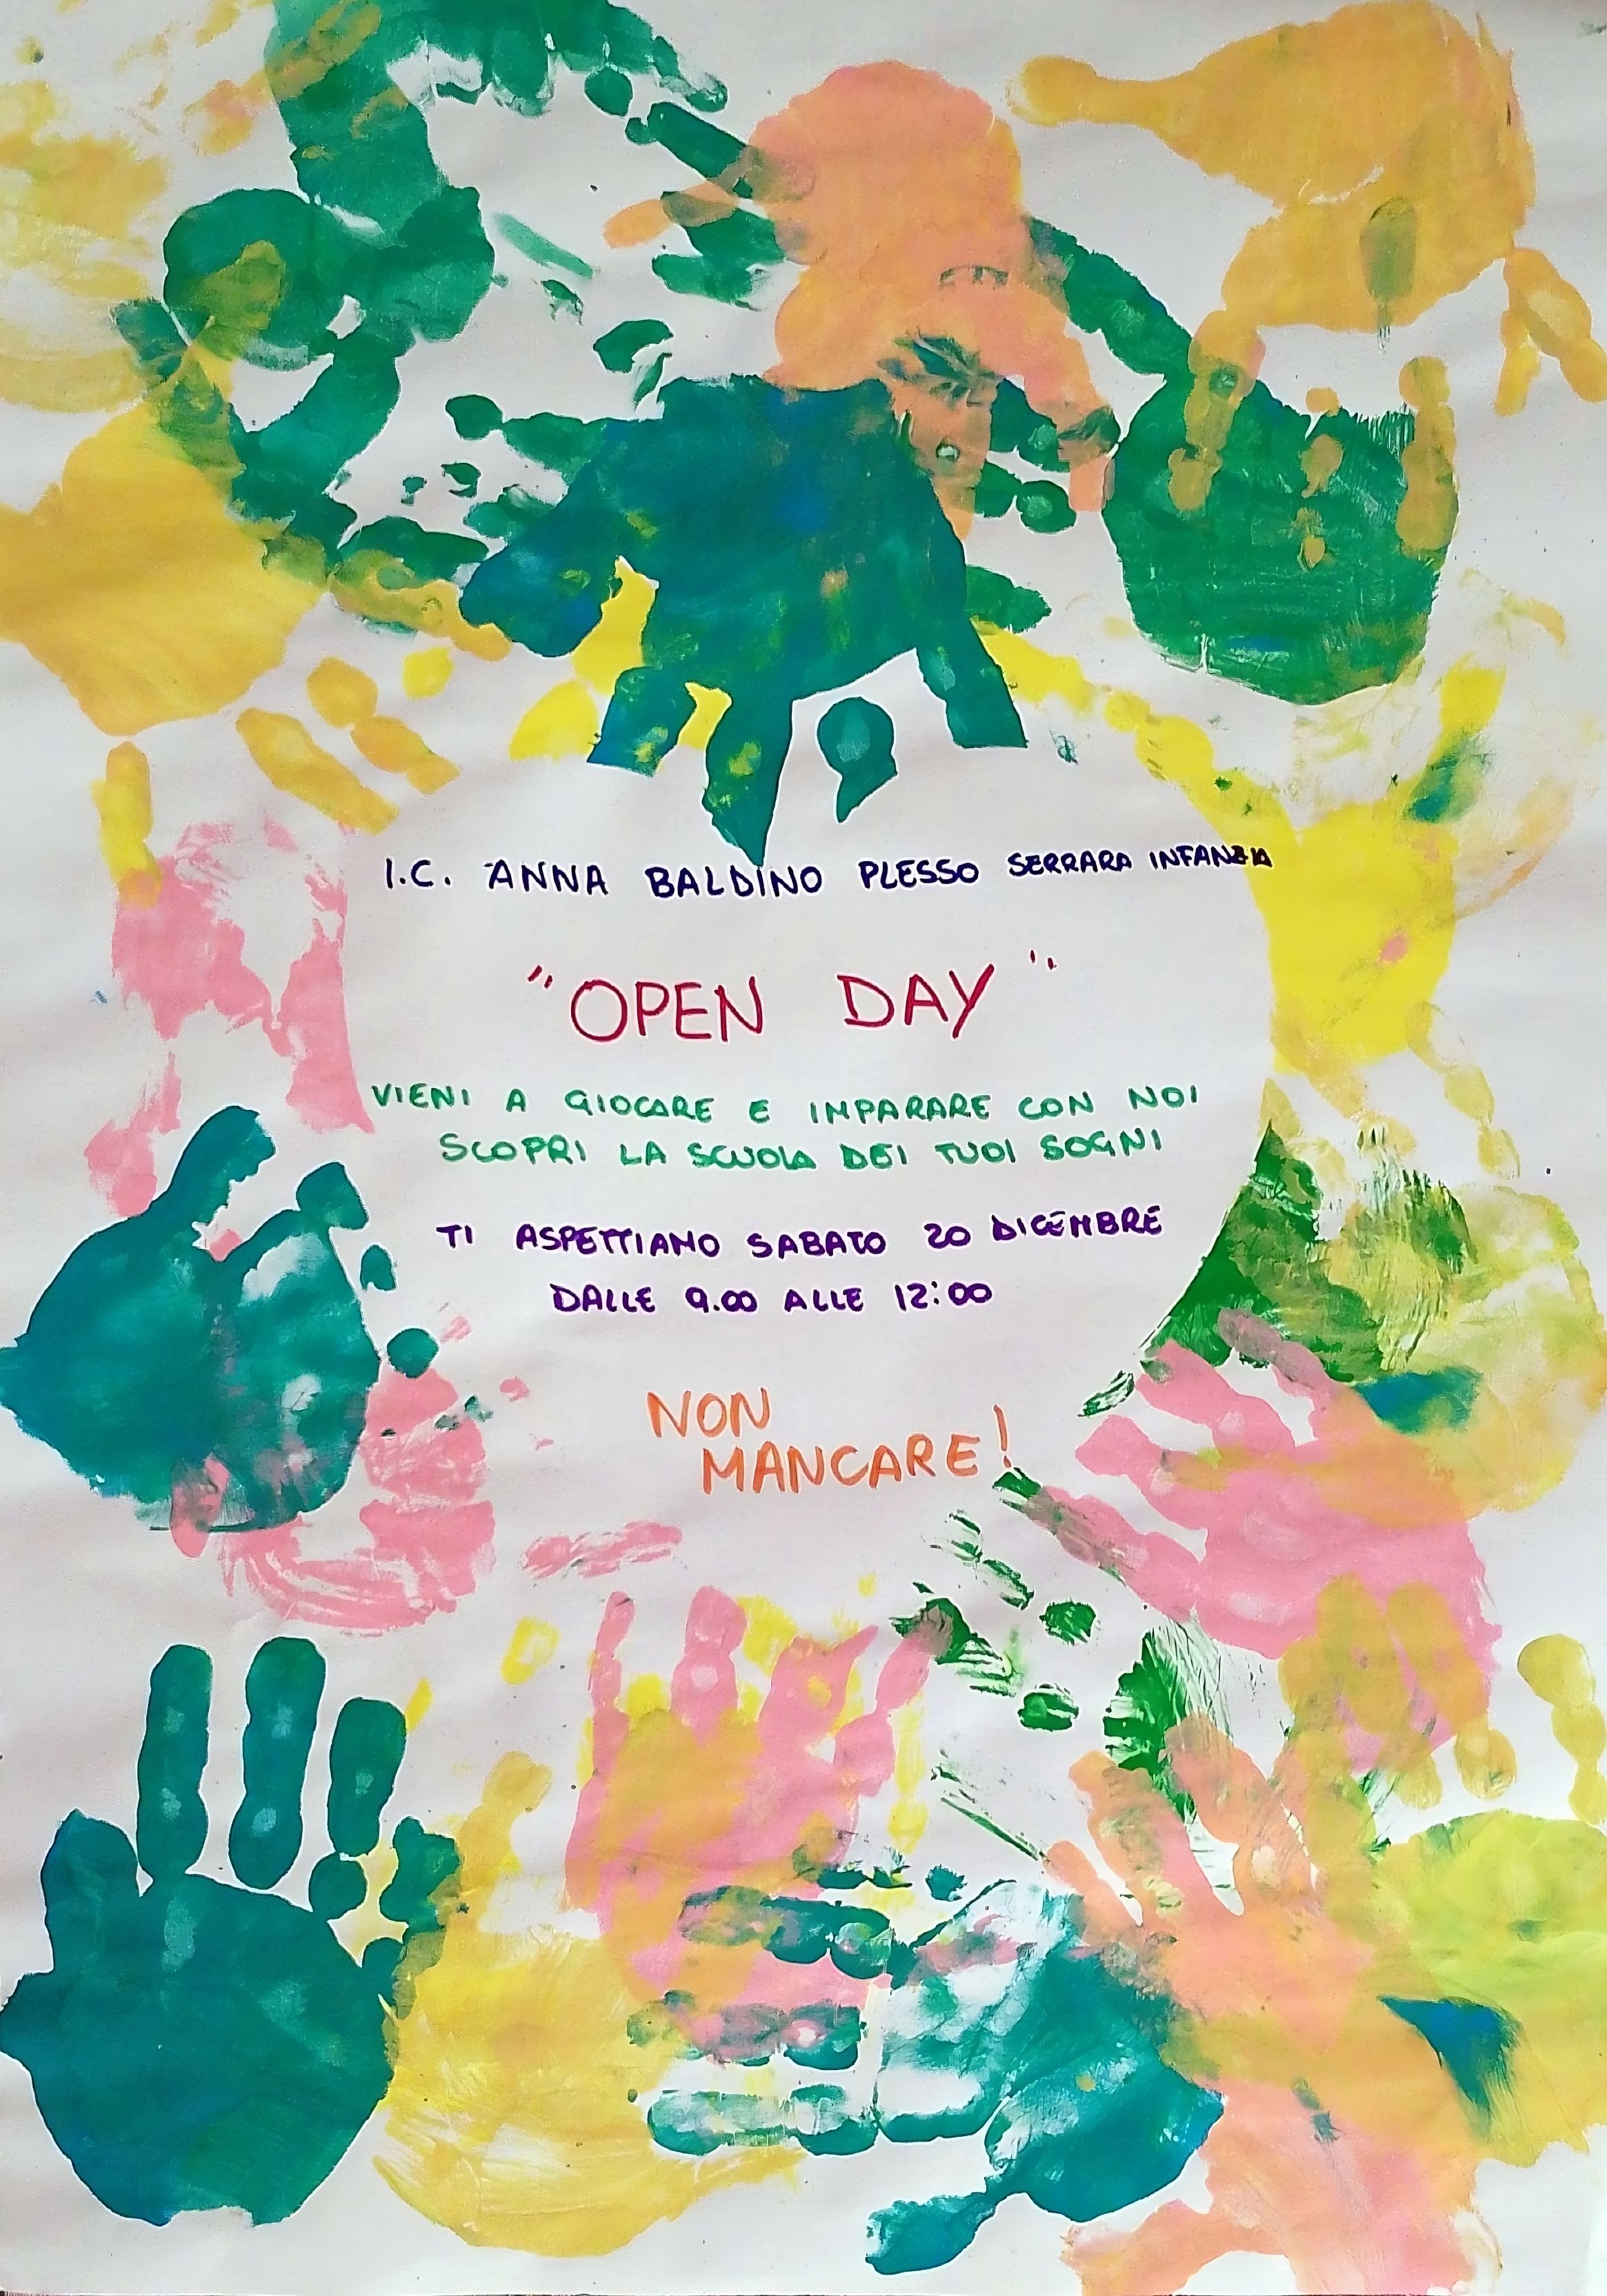 I.C. ANNA BALDINO PLESSO SERRARA INFANZIA
"OPEN DAY"
VIENI A GIOCARE E IMPARARE CON NOI
SCOPRI LA SCUOLA DEI TUOI SOGNI
TI ASPETTIAMO SABATO 20 DICEMBRE
DALLE 9.00 ALLE 12:00
NON
MANCARE!